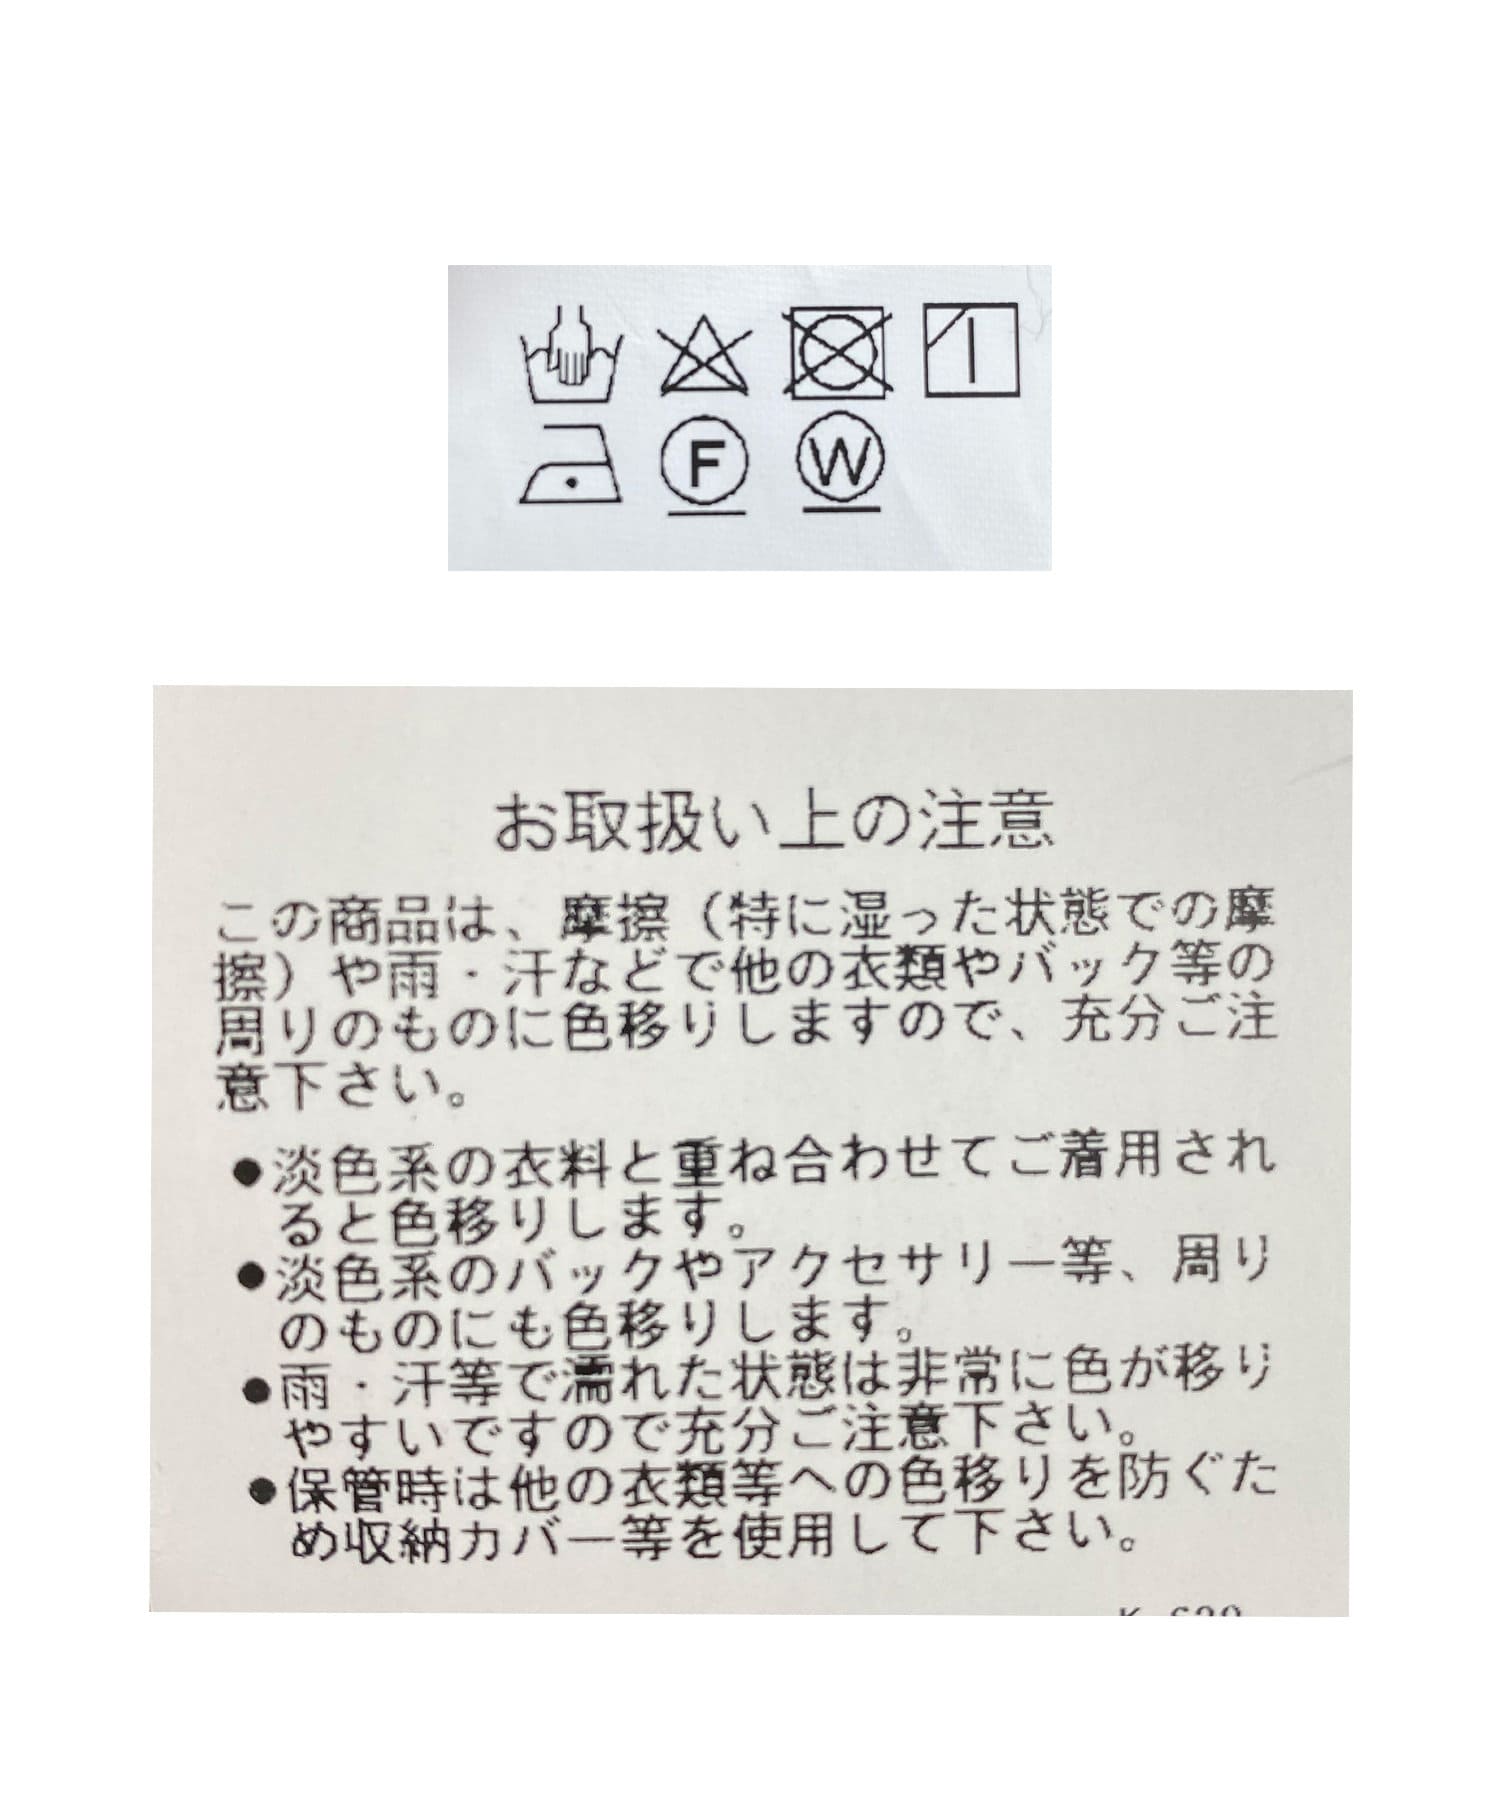 F W
お取扱い上の注意
この商品は、摩擦（特に湿った状態での摩
擦）や雨・汗などで他の衣類やバック等の
周りのものに色移りしますので、充分ご注
意下さい。
●淡色系の衣料と重ね合わせてご着用され
ると色移りします。
●淡色系のバックやアクセサリー等、周り
のものにも色移りします。
●雨・汗等で濡れた状態は非常に色が移り
やすいですので充分ご注意下さい。
●保管時は他の衣類等への色移りを防ぐた
め収納カバー等を使用して下さい。